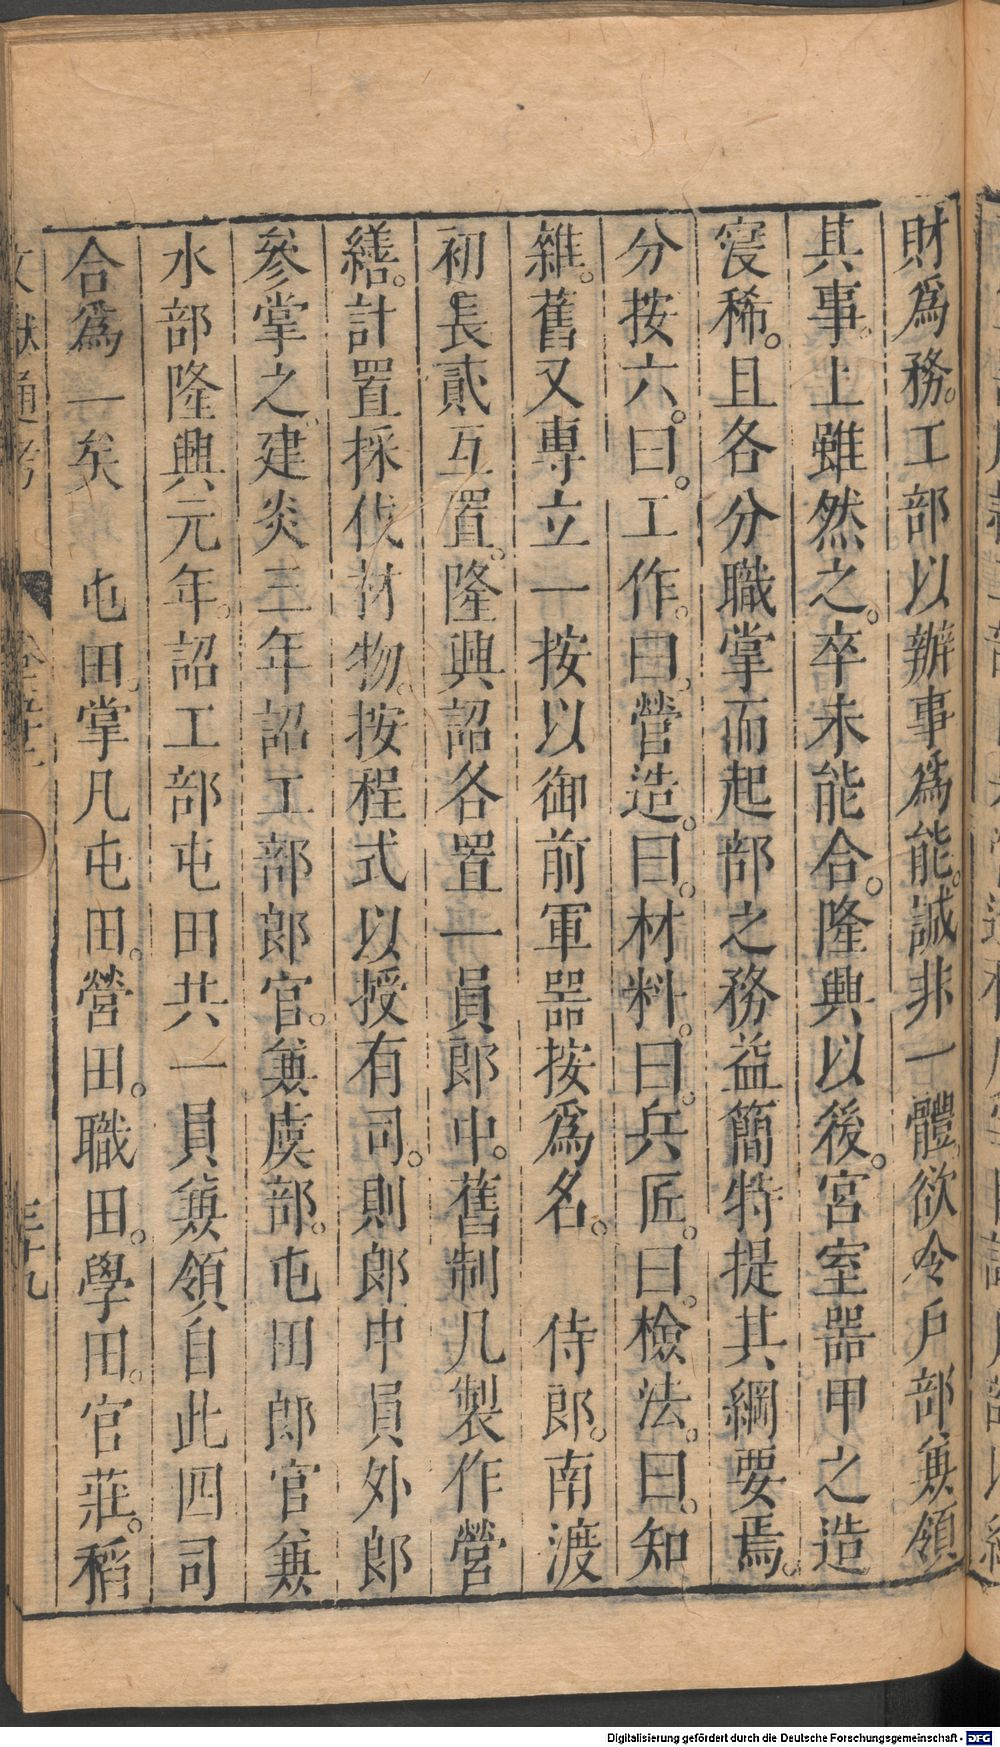 財爲務。工部以辦事爲能。誠非一體。欲令戶部兼領
其事。上雖然之。卒未能合。隆興以後。宮室器甲之造
寖稀。且各分職掌而起部之務益簡特提其綱要焉。
分按六。曰。工作。曰。營造。曰。材料。曰。兵匠。曰。檢法。曰。知
雜。舊又專立一按以御前軍器按爲名。　侍郎。南渡
初。長貳互置。隆興詔各置一員郎中。舊制凡製作營
繕。計置採伐材物。按程式以授有司。則郎中員外郎
參掌之。建炎三年詔工部郎官。兼虞部。屯田郎官兼
水部隆興元年。詔工部屯田共一員兼領自此四司
合爲一矣　屯田。掌凡屯田。營田。職田。學田。官莊。稻
文獻通考
三十九
Digitalisierung gefördert durch die Deutsche Forschungsgemeinschaft - DFG